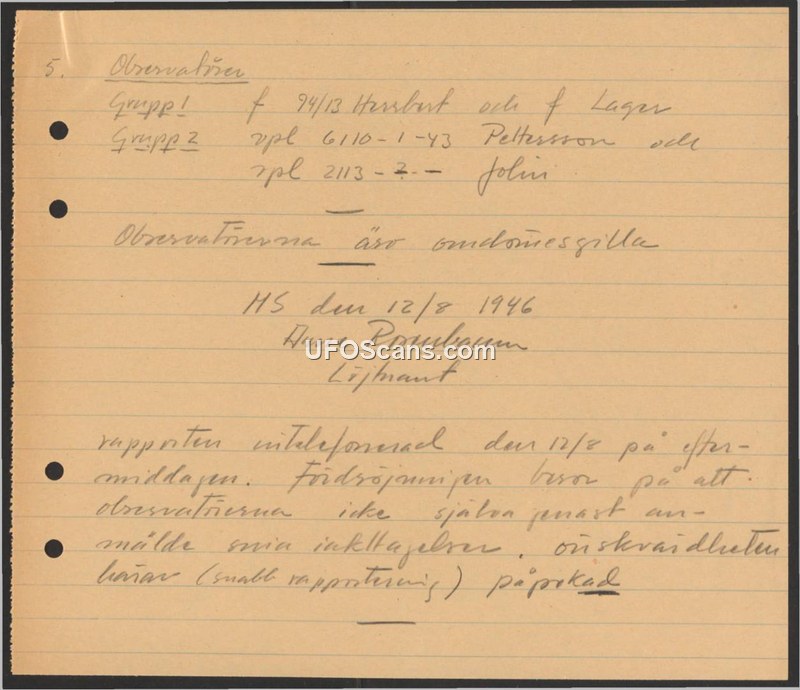 5. Observatörer
Grupp 1 f 94/13 Herrbert och f Lager
Grupp 2 vpl 6110-1-43 Pettersson och
vpl 2113-2-- Jolin
Observatörerna äro omdömesgilla
HS den 12/8 1946
UFOScans.com
Löjtnant
rapporten intelefonerad den 12/8 på efter-
middagen. Fördröjningen beror på att
observatörerna icke själva genast an-
mälde sina iakttagelser. Önskvärdheten
härav (snabb rapportering) påpekad